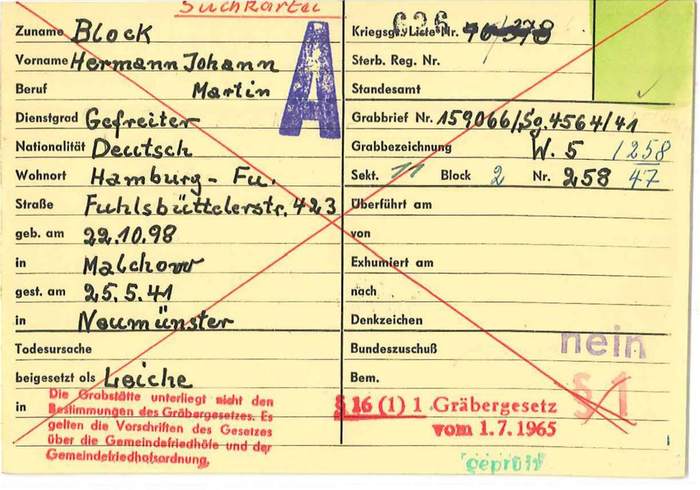 Suchkartei
Zuname Block
Vorname Hermann Johann
Beruf Martin
Dienstgrad Gefreiter
Nationalität Deutsch
Wohnort Hamburg - Fu.
Straße Fuhlsbüttelerstr. 423
geb. am 22.10.98
in Malchow
gest. am 25.5.41
in Neumünster
Todesursache
beigesetzt als Leiche
in
Die Grabstätte unterliegt nicht den
Bestimmungen des Gräbergesetzes. Es
gelten die Vorschriften des Gesetzes
über die Gemeindefriedhöfe und der
Gemeindefriedhofsordnung.
A
626
Kriegsgr. Liste Nr.
Sterb. Reg. Nr.
Standesamt
Grabbrief Nr. 159066/Sg. 4564/41
Grabbezeichnung W. 5 /258
Sekt. 11 Block 2 Nr. 258 47
Überführt am
von
Exhumiert am
nach
Denkzeichen
Bundeszuschuß nein
Bem. § 1
§ 16 (1) 1 Gräbergesetz
vom 1.7.1965
geprüft